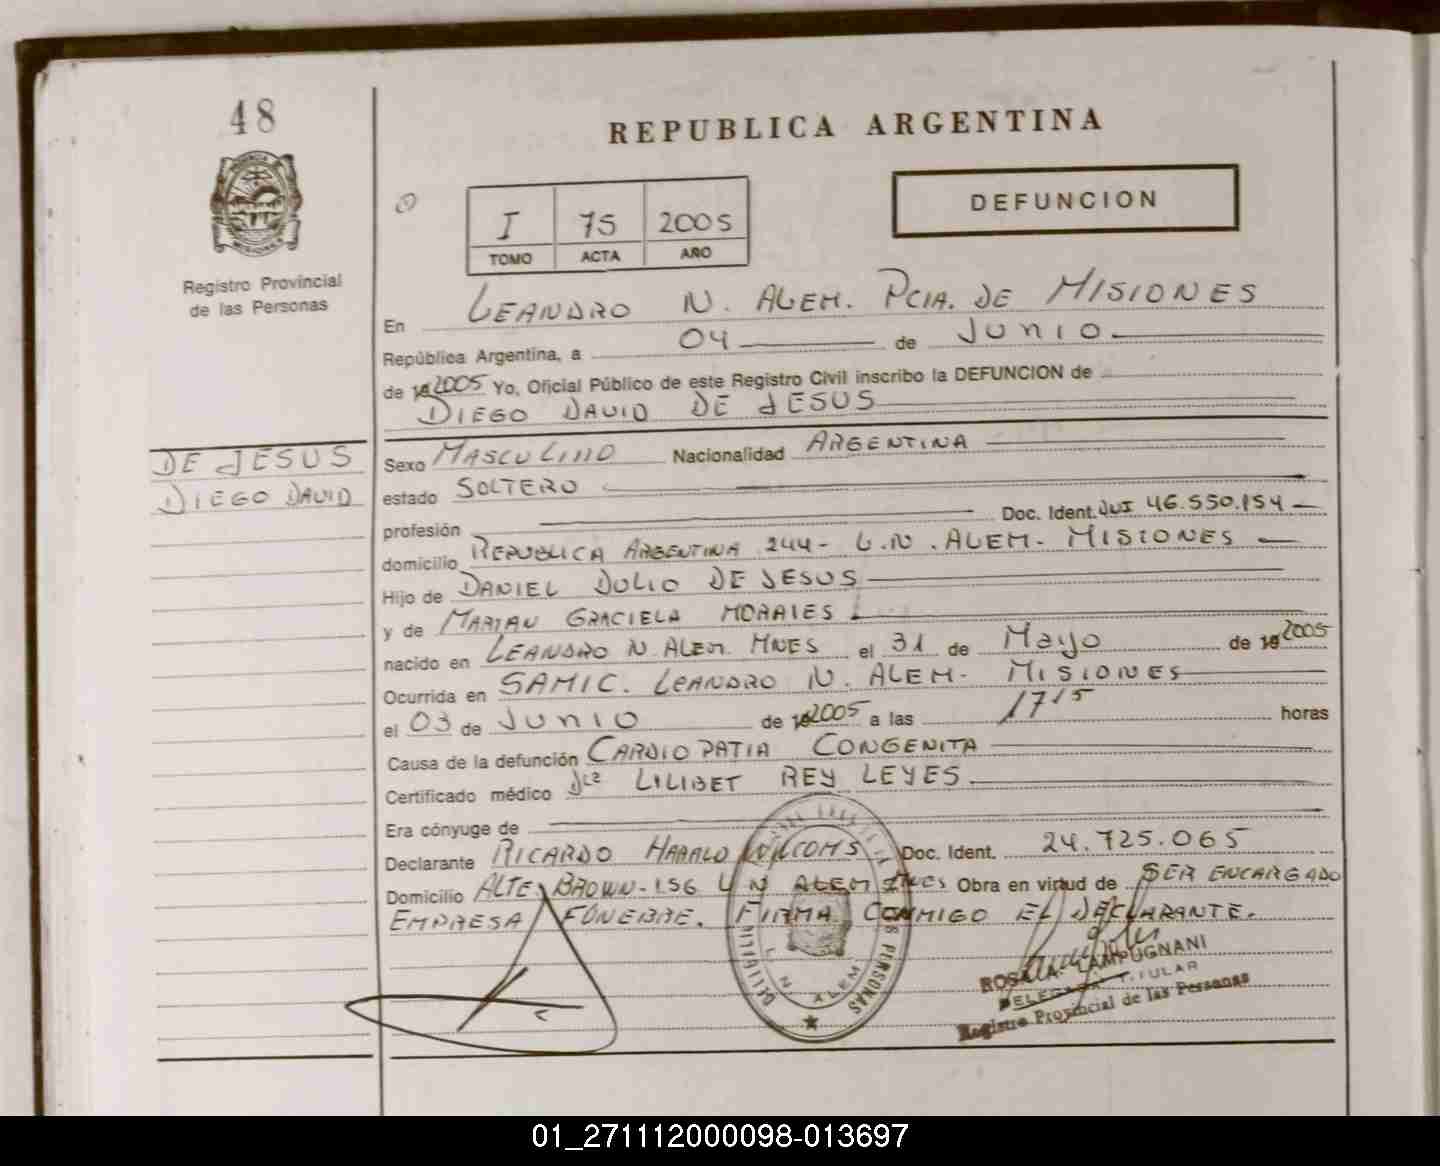 48
REPUBLICA ARGENTINA
DEFUNCION
I 75 2005
TOMO ACTA AÑO
Registro Provincial
de las Personas
En LEANDRO N. ALEM. PCIA. DE MISIONES
República Argentina, a 04 de JUNIO
de 19 2005 Yo, Oficial Público de este Registro Civil inscribo la DEFUNCION de
DIEGO DAVID DE JESUS
DE JESUS
DIEGO DAVID
Sexo MASCULINO Nacionalidad ARGENTINA
estado SOLTERO
profesión Doc. Ident. DNI 46.550.154
domicilio REPUBLICA ARGENTINA 244- L.N. ALEM. MISIONES
Hijo de DANIEL JULIO DE JESUS
y de MARIAN GRACIELA MORALES
nacido en LEANDRO N. ALEM. MNES el 31 de Mayo de 19 2005
Ocurrida en SAMIC. LEANDRO N. ALEM- MISIONES
el 03 de JUNIO de 19 2005 a las 17 15 horas
Causa de la defunción CARDIOPATIA CONGENITA
Certificado médico LILIBET REY LEYES
Era cónyuge de
Declarante RICARDO HARALD WILCOMS Doc. Ident. 24.725.065
Domicilio ALTE BROWN-156 L N ALEM MNES Obra en virtud de SER ENCARGADO
EMPRESA FUNEBRE. FIRMA CONMIGO EL DECLARANTE.
L. N. ALEM
PERSONAS
ROSA A. LAMPUGNANI
DELEGADA TITULAR
Registro Provincial de las Personas
01_271112000098-013697